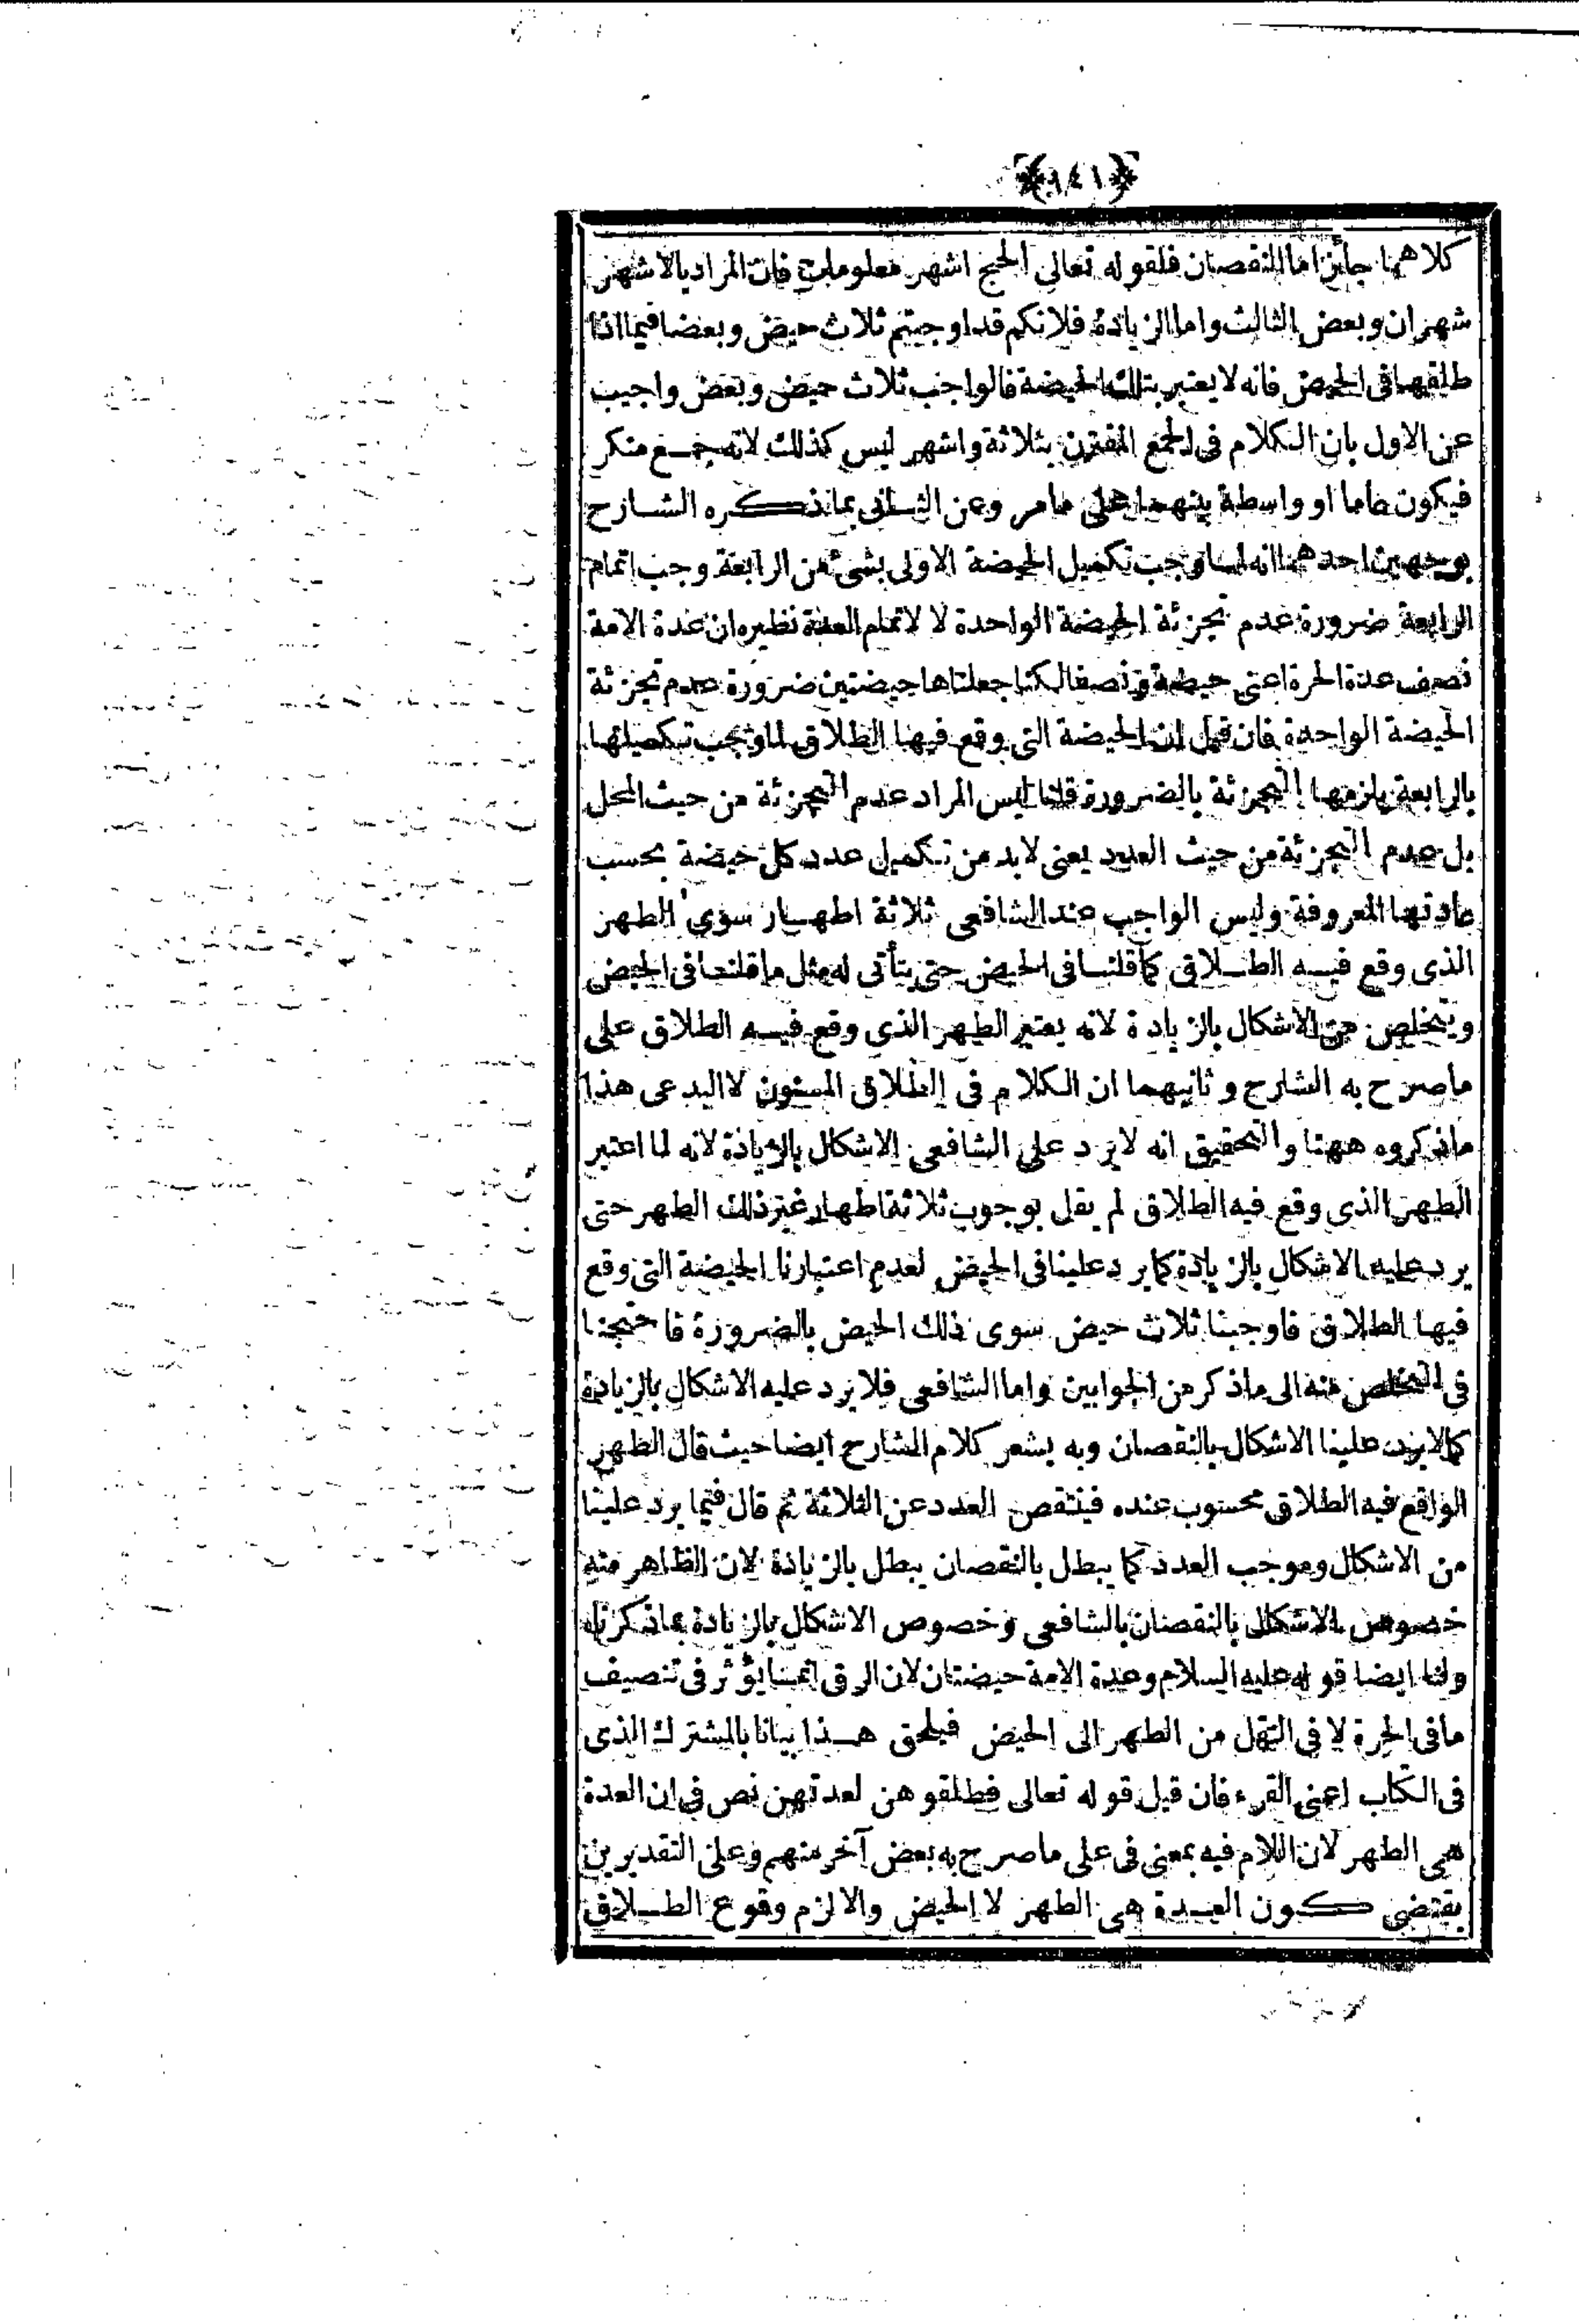 ﴿١٤١﴾
كلاهما جائز اما النقصان فلقوله تعالى الحج اشهر معلومات فان المراد بالاشهر
شهران وبعض الثالث واما الزيادة فلانكم قد اوجبتم ثلاث حيض وبعضا فيما اذا
طلقها فى الحيض فانه لا يعتبر بتلك الحيضة فالواجب ثلاث حيض وبعض واجيب
عن الاول بان الكلام فى الجمع المقترن بثلاثة واشهر ليس كذلك لانه جمع منكر
فيكون عاما او واسطة بينهما على مامر وعن الثانى بما ذكره الشارح
بوجهين احدهما انه لما وجب تكميل الحيضة الاولى بشئ من الرابعة وجب اتمام
الرابعة ضرورة عدم تجزئة الحيضة الواحدة لا لاتمام العدة نظيره ان عدة الامة
نصف عدة الحرة اعنى حيضة ونصفا لكنا جعلناها حيضتين ضرورة عدم تجزئة
الحيضة الواحدة فان قيل ان الحيضة التى وقع فيها الطلاق لما وجب تكميلها
بالرابعة يلزمها التجزئة بالضرورة قلنا ليس المراد عدم التجزئة من حيث المحل
بل عدم التجزئة من حيث العدد يعنى لابد من تكميل عدد كل حيضة بحسب
عادتها المعروفة وليس الواجب عند الشافعى ثلاثة اطهار سوى الطهر
الذى وقع فيه الطلاق كما قلنا فى الحيض حتى يتأتى له مثل ما قلنا فى الحيض
ويتخلص عن الاشكال بالزيادة لانه يعتبر الطهر الذى وقع فيه الطلاق على
ماصرح به الشارح وثانيهما ان الكلام فى الطلاق المسنون لا البدعى هذا
ماذكروه ههنا والتحقيق انه لا يرد على الشافعى الاشكال بالزيادة لانه لما اعتبر
الطهر الذى وقع فيه الطلاق لم يقل بوجوب ثلاثة اطهار غير ذلك الطهر حتى
يرد عليه الاشكال بالزيادة كما يرد علينا فى الحيض لعدم اعتبارنا الحيضة التى وقع
فيها الطلاق فاوجبنا ثلاث حيض سوى ذلك الحيض بالضرورة فاحتجنا
فى التخلص منه الى ماذكر من الجوابين واما الشافعى فلا يرد عليه الاشكال بالزيادة
كما لا يرد علينا الاشكال بالنقصان وبه يشعر كلام الشارح ايضا حيث قال الطهر
الواقع فيه الطلاق محسوب عنده فينتقص العدد عن الثلاثة ثم قال فيما يرد علينا
من الاشكال وموجب العدد كما يبطل بالنقصان يبطل بالزيادة لان الظاهر منه
خصوص الاشكال بالنقصان بالشافعى وخصوص الاشكال بالزيادة بماذكرنا
ولنا ايضا قوله عليه السلام وعدة الامة حيضتان لان الرق انما يؤثر فى تنصيف
مافى الحرة لا فى النقل من الطهر الى الحيض فيلحق هذا بيانا بالمشترك الذى
فى الكتاب اعنى القرء فان قيل قوله تعالى فطلقوهن لعدتهن نص فى ان العدة
هى الطهر لان اللام فيه بمعنى فى على ماصرح به بعض آخر منهم وعلى التقديرين
يقتضى كون العدة هى الطهر لا الحيض والا لزم وقوع الطلاق